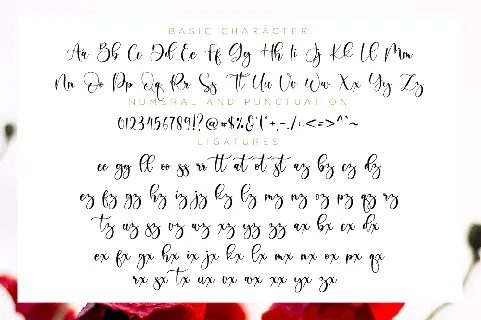 BASIC CHARACTER
Aa Bb Cc Dd Ee Ff Gg Hh Ii Jj Kk Ll Mm
Nn Oo Pp Qq Rr Ss Tt Uu Vv Ww Xx Yy Zz
NUMERAL AND PUNCTUATION
0123456789!?@#$%&'(*+,-./:<=>^`~
LIGATURES
ee gg ll oo ss rr tt at ot st az bz cz dz
ez fz gz hz iz jz kz lz mz nz oz pz qz rz
tz uz sz vz wz xz yz zz ax bx cx dx
ex fx gx hx ix jx kx lx mx nx ox px qx
rx sx tx ux vx wx xx yx zx